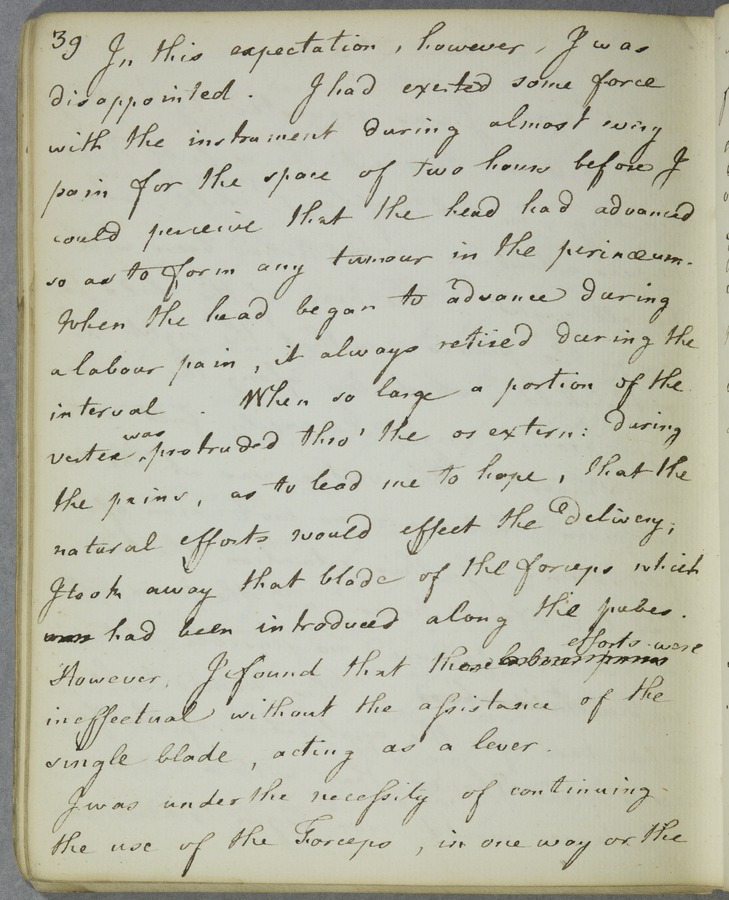 39 In this expectation, however, I was
disappointed. I had exerted some force
with the instrument during almost every
pain for the space of two hours before I
could perceive that the head had advanced
so as to form any tumour in the perinæum.
When the head began to advance during
a labour pain, it always retired during the
interval. When so large a portion of the
was
vertex protruded thro' the os extern: during
the pains, as to lead me to hope, that the
natural efforts would effect the delivery;
I took away that blade of the forceps which
had been introduced along the pubes.
efforts were
However, I found that these labour pains
ineffectual without the assistance of the
single blade, acting as a lever.
I was under the necessity of continuing
the use of the Forceps, in one way or the